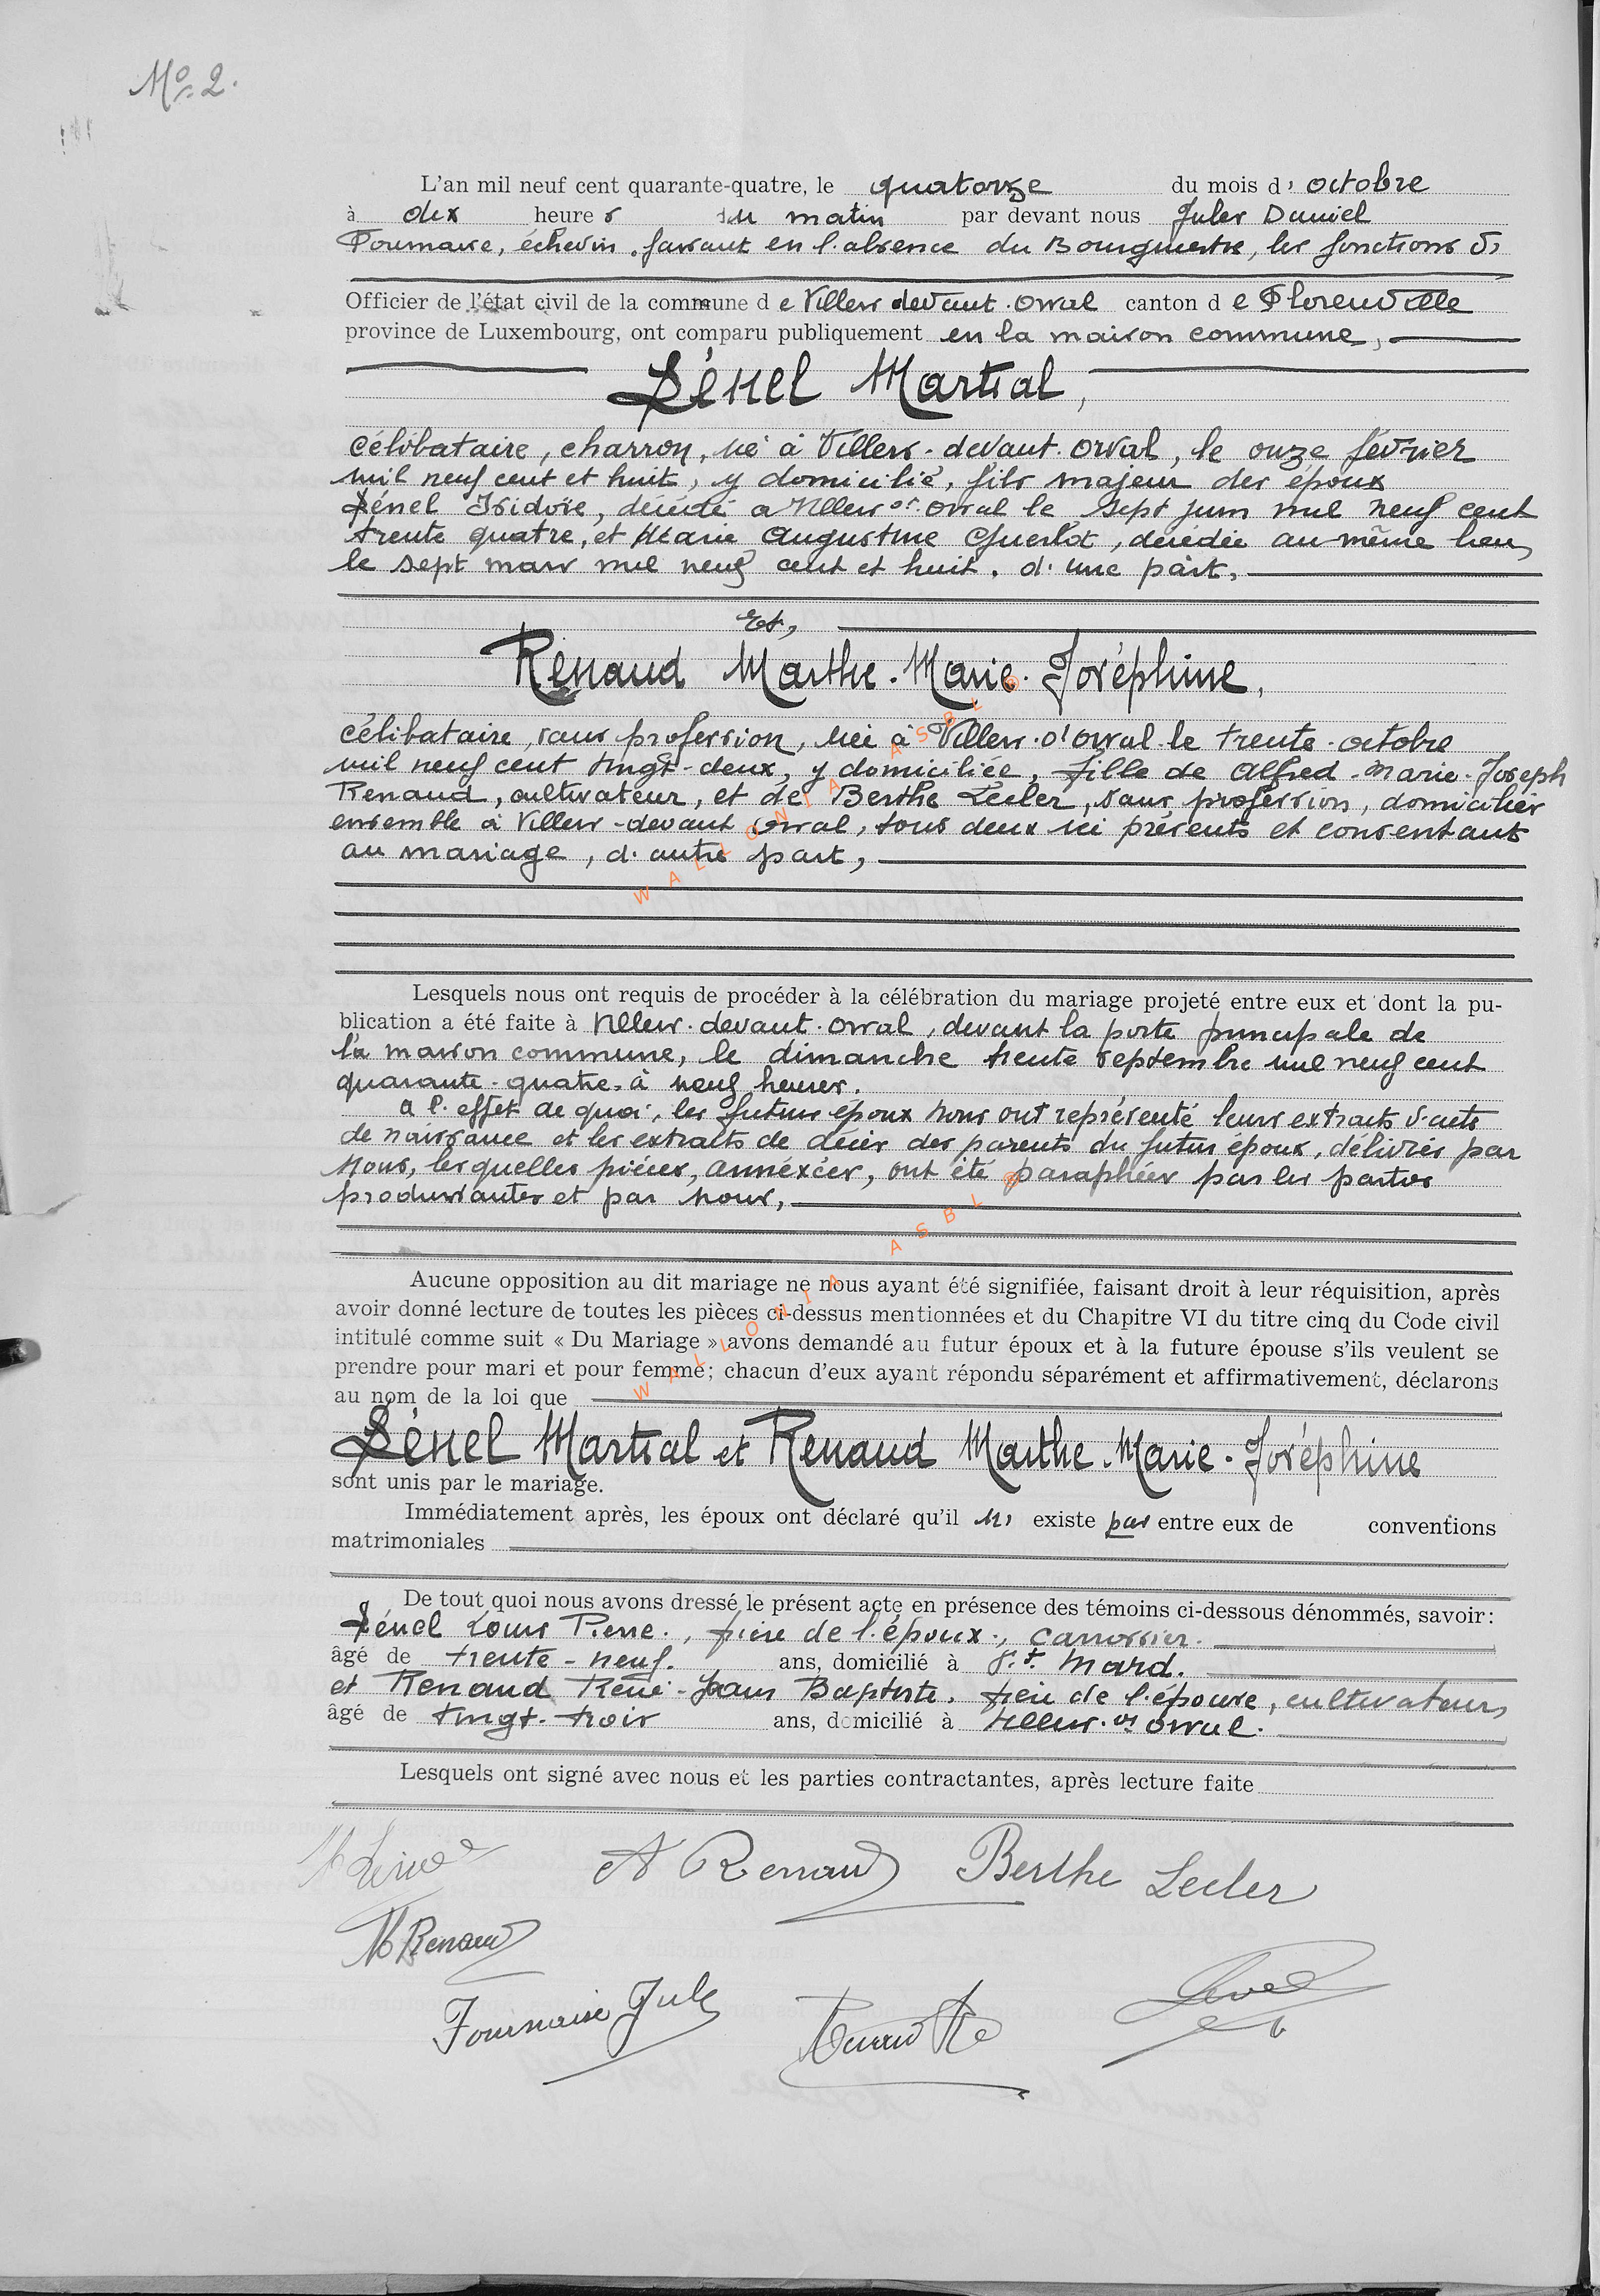 No 2.
L'an mil neuf cent quarante-quatre, le quatorze du mois d' octobre
à dix heures du matin par devant nous Jules Daniel
Fournaise, échevin, faisant en l'absence du Bourgmestre, les fonctions d'
Officier de l'état civil de la commune de Villers devant-Orval canton de Florenville
province de Luxembourg, ont comparu publiquement en la maison commune,
Lénel Martial,
célibataire, charron, né à Villers-devant-Orval, le onze février
mil neuf cent et huit, y domicilié, fils majeur des époux
Lénel Isidore, décédé à Villers dt Orval le sept juin mil neuf cent
trente quatre, et Marie Augustine Guerlot, décédée au même lieu,
le sept mars mil neuf cent et huit, d'une part,
Et,
Renaud Marthe-Marie-Joséphine,
célibataire, sans profession, née à Villers-dt Orval le trente-octobre
mil neuf cent vingt-deux, y domiciliée, fille de Alfred-Marie-Joseph
Renaud, cultivateur, et de Berthe Lecler, sans profession, domiciliés
ensemble à Villers-devant Orval, tous deux ici présents et consentants
au mariage, d'autre part,
WALLONIA ASBL ®
Lesquels nous ont requis de procéder à la célébration du mariage projeté entre eux et dont la pu-
blication a été faite à Villers-devant-Orval, devant la porte principale de
la maison commune, le dimanche trente septembre mil neuf cent
quarante-quatre, à neuf heures.
A l'effet de quoi, les futurs époux nous ont représenté leurs extraits d'acte
de naissance et les extraits de décès des parents du futur époux, délivrés par
Nous, lesquelles pièces, annexées, ont été paraphées par les parties
produisantes et par nous,
WALLONIA ASBL ®
Aucune opposition au dit mariage ne nous ayant été signifiée, faisant droit à leur réquisition, après
avoir donné lecture de toutes les pièces ci-dessus mentionnées et du Chapitre VI du titre cinq du Code civil
intitulé comme suit « Du Mariage » avons demandé au futur époux et à la future épouse s'ils veulent se
prendre pour mari et pour femme; chacun d'eux ayant répondu séparément et affirmativement, déclarons
au nom de la loi que
Lénel Martial et Renaud Marthe-Marie-Joséphine
sont unis par le mariage.
Immédiatement après, les époux ont déclaré qu'il n' existe pas entre eux de conventions
matrimoniales
De tout quoi nous avons dressé le présent acte en présence des témoins ci-dessous dénommés, savoir:
Lénel Louis Pierre, frère de l'époux, carrossier.
âgé de trente-neuf. ans, domicilié à St. Mard.
et Renaud René-Jean Baptiste, frère de l'épouse, cultivateur,
âgé de vingt-trois ans, domicilié à Villers-dt Orval.
Lesquels ont signé avec nous et les parties contractantes, après lecture faite
A Renaud Berthe Lecler
M Renaud
Fournaise Jules